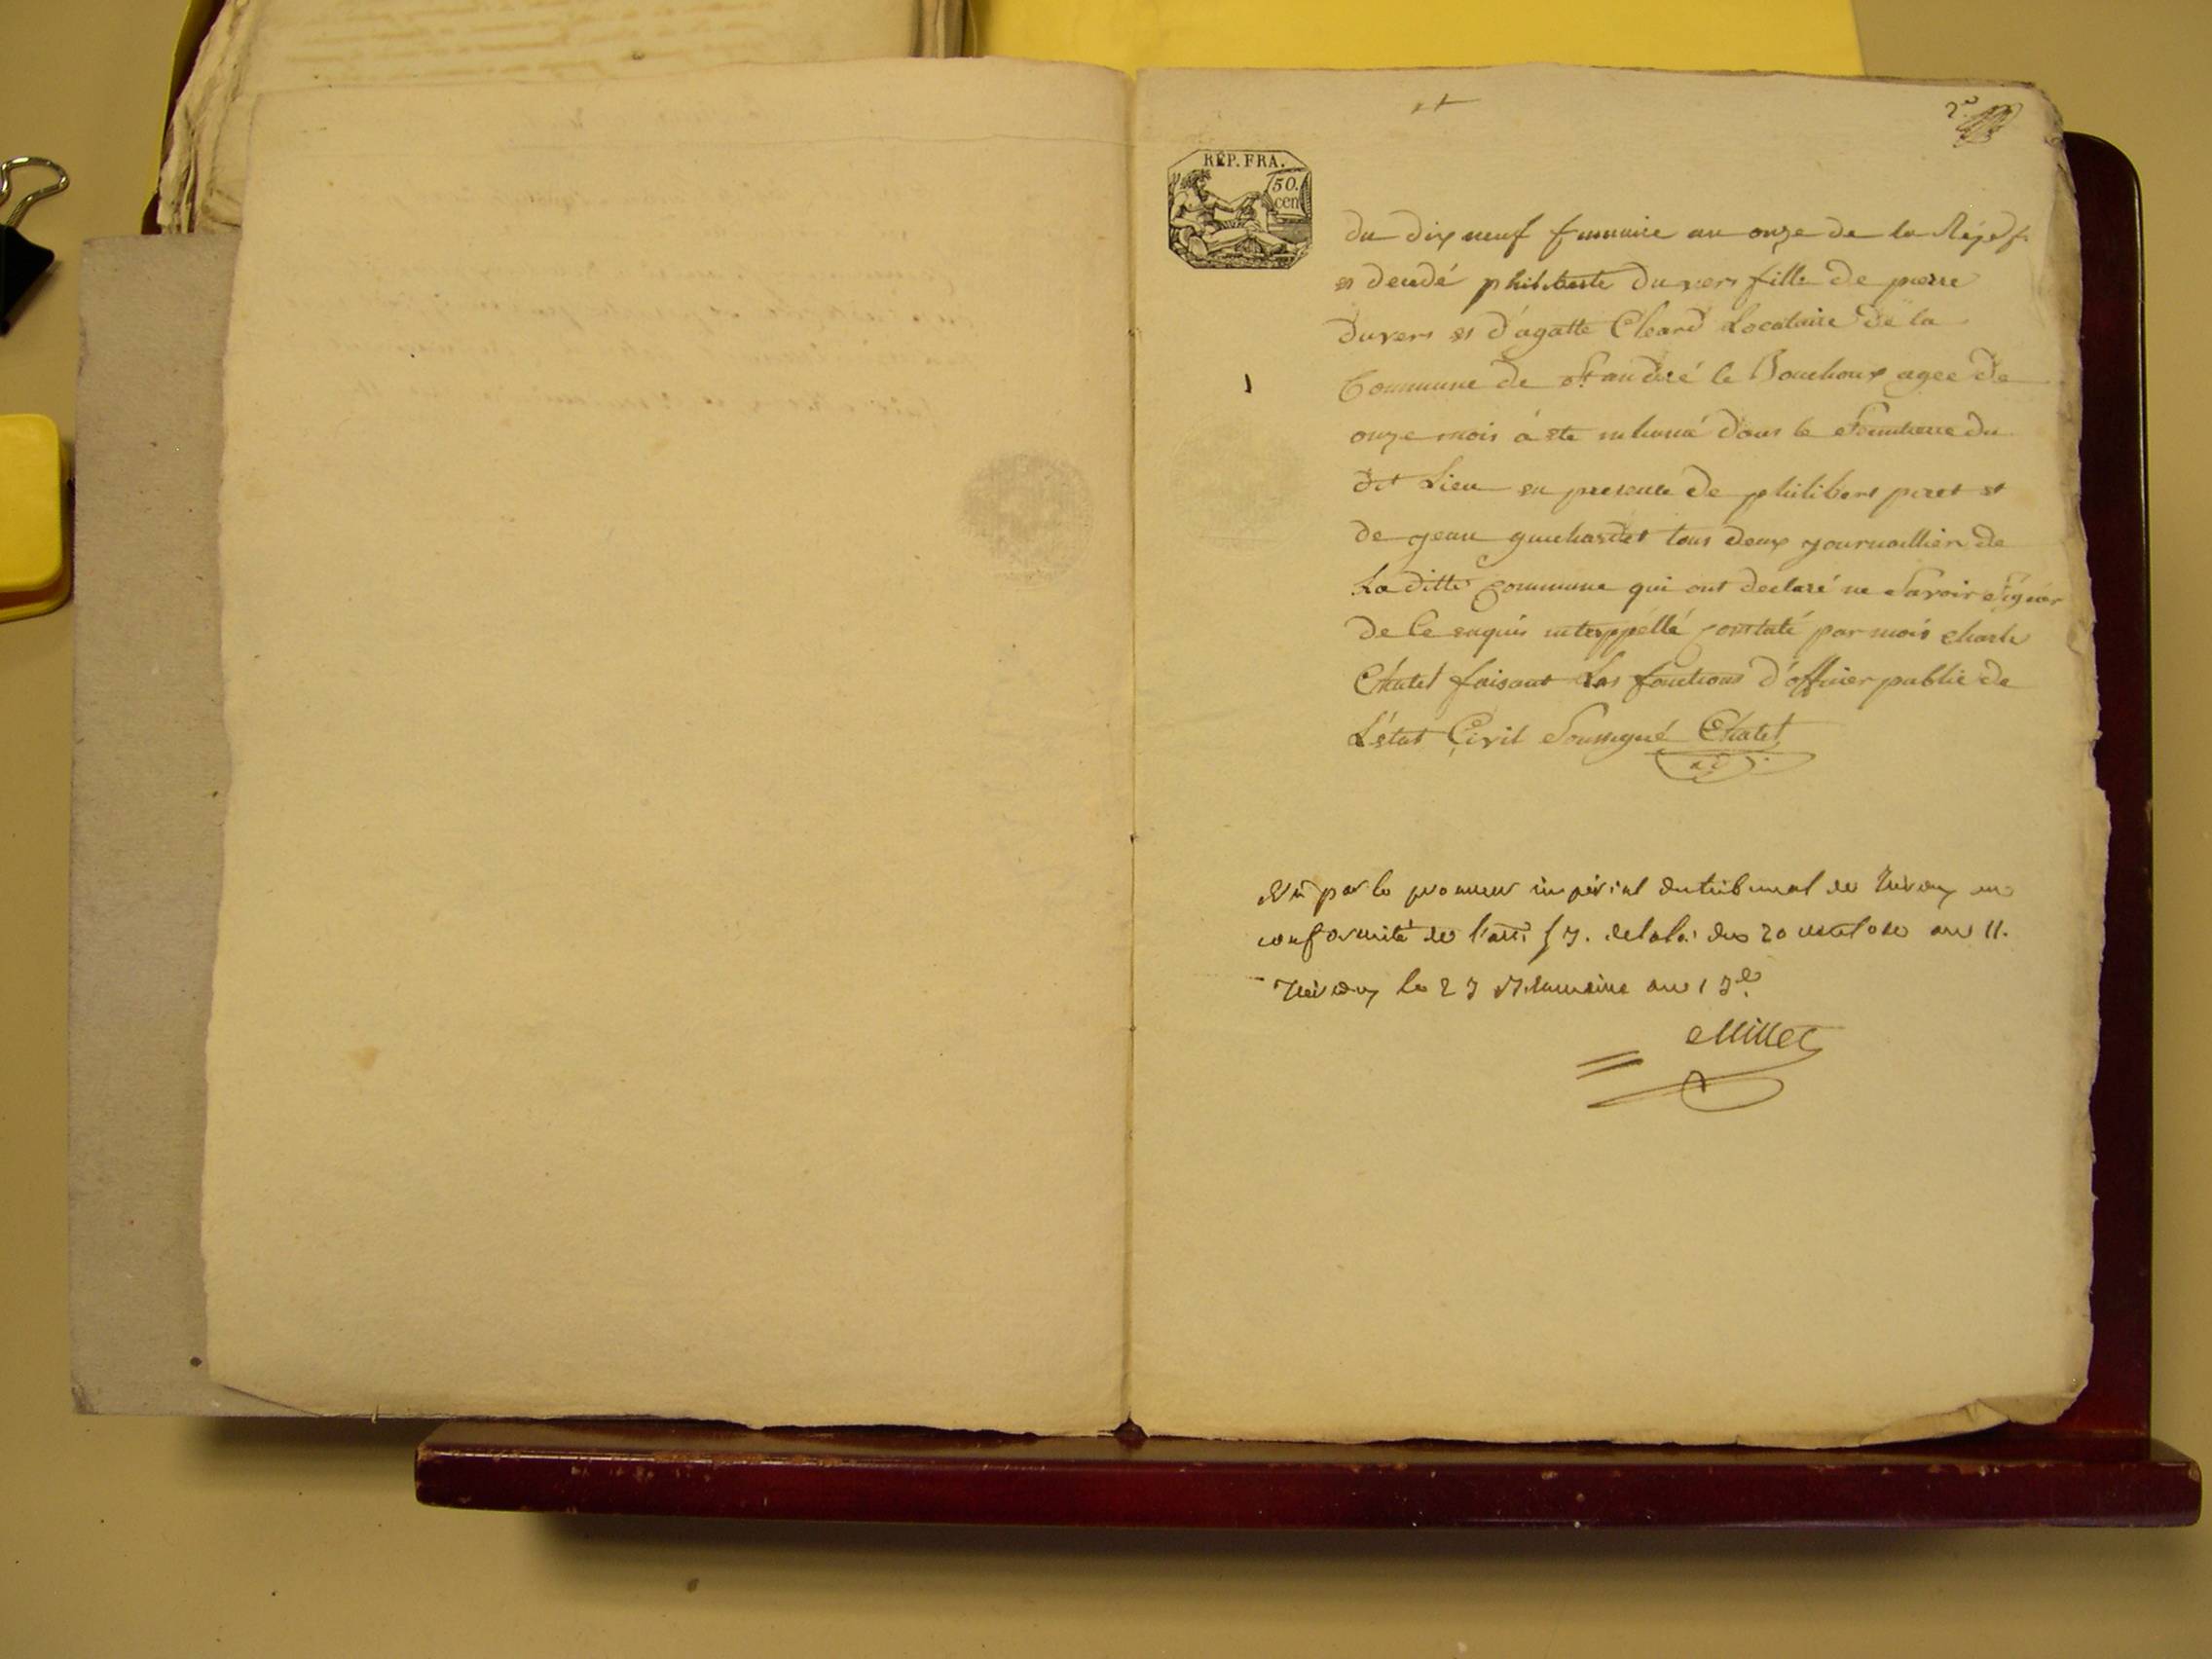 2e
RÉP. FRA.
50.
cen
du dix neuf frimaire an onze de la Rép. f.
es decedé philiberte Duvers fille de pierre
Duvers et d'agatte Cleard Locataire de la
Commune de St andré le Bouchoux agee de
onze mois à ete inhumé dans le Simtiere du
dit Lieu en presence de philibert piret et
de jean guichardet tous deux journaillier de
La ditte Commune qui ont declaré ne Savoir Signer
de Ce enquis interppéllé constaté par mois charle
Chatel faisant Les fonctions d'officier public de
L'état Civil Soussigné Chatel
Vû par le procureur impérial du tribunal de Trévoux en
conformité de l'arti. 57. de la loi du 20 ventose an 11.
Trévoux le 23 Vendemiaire an 13e.
Millet